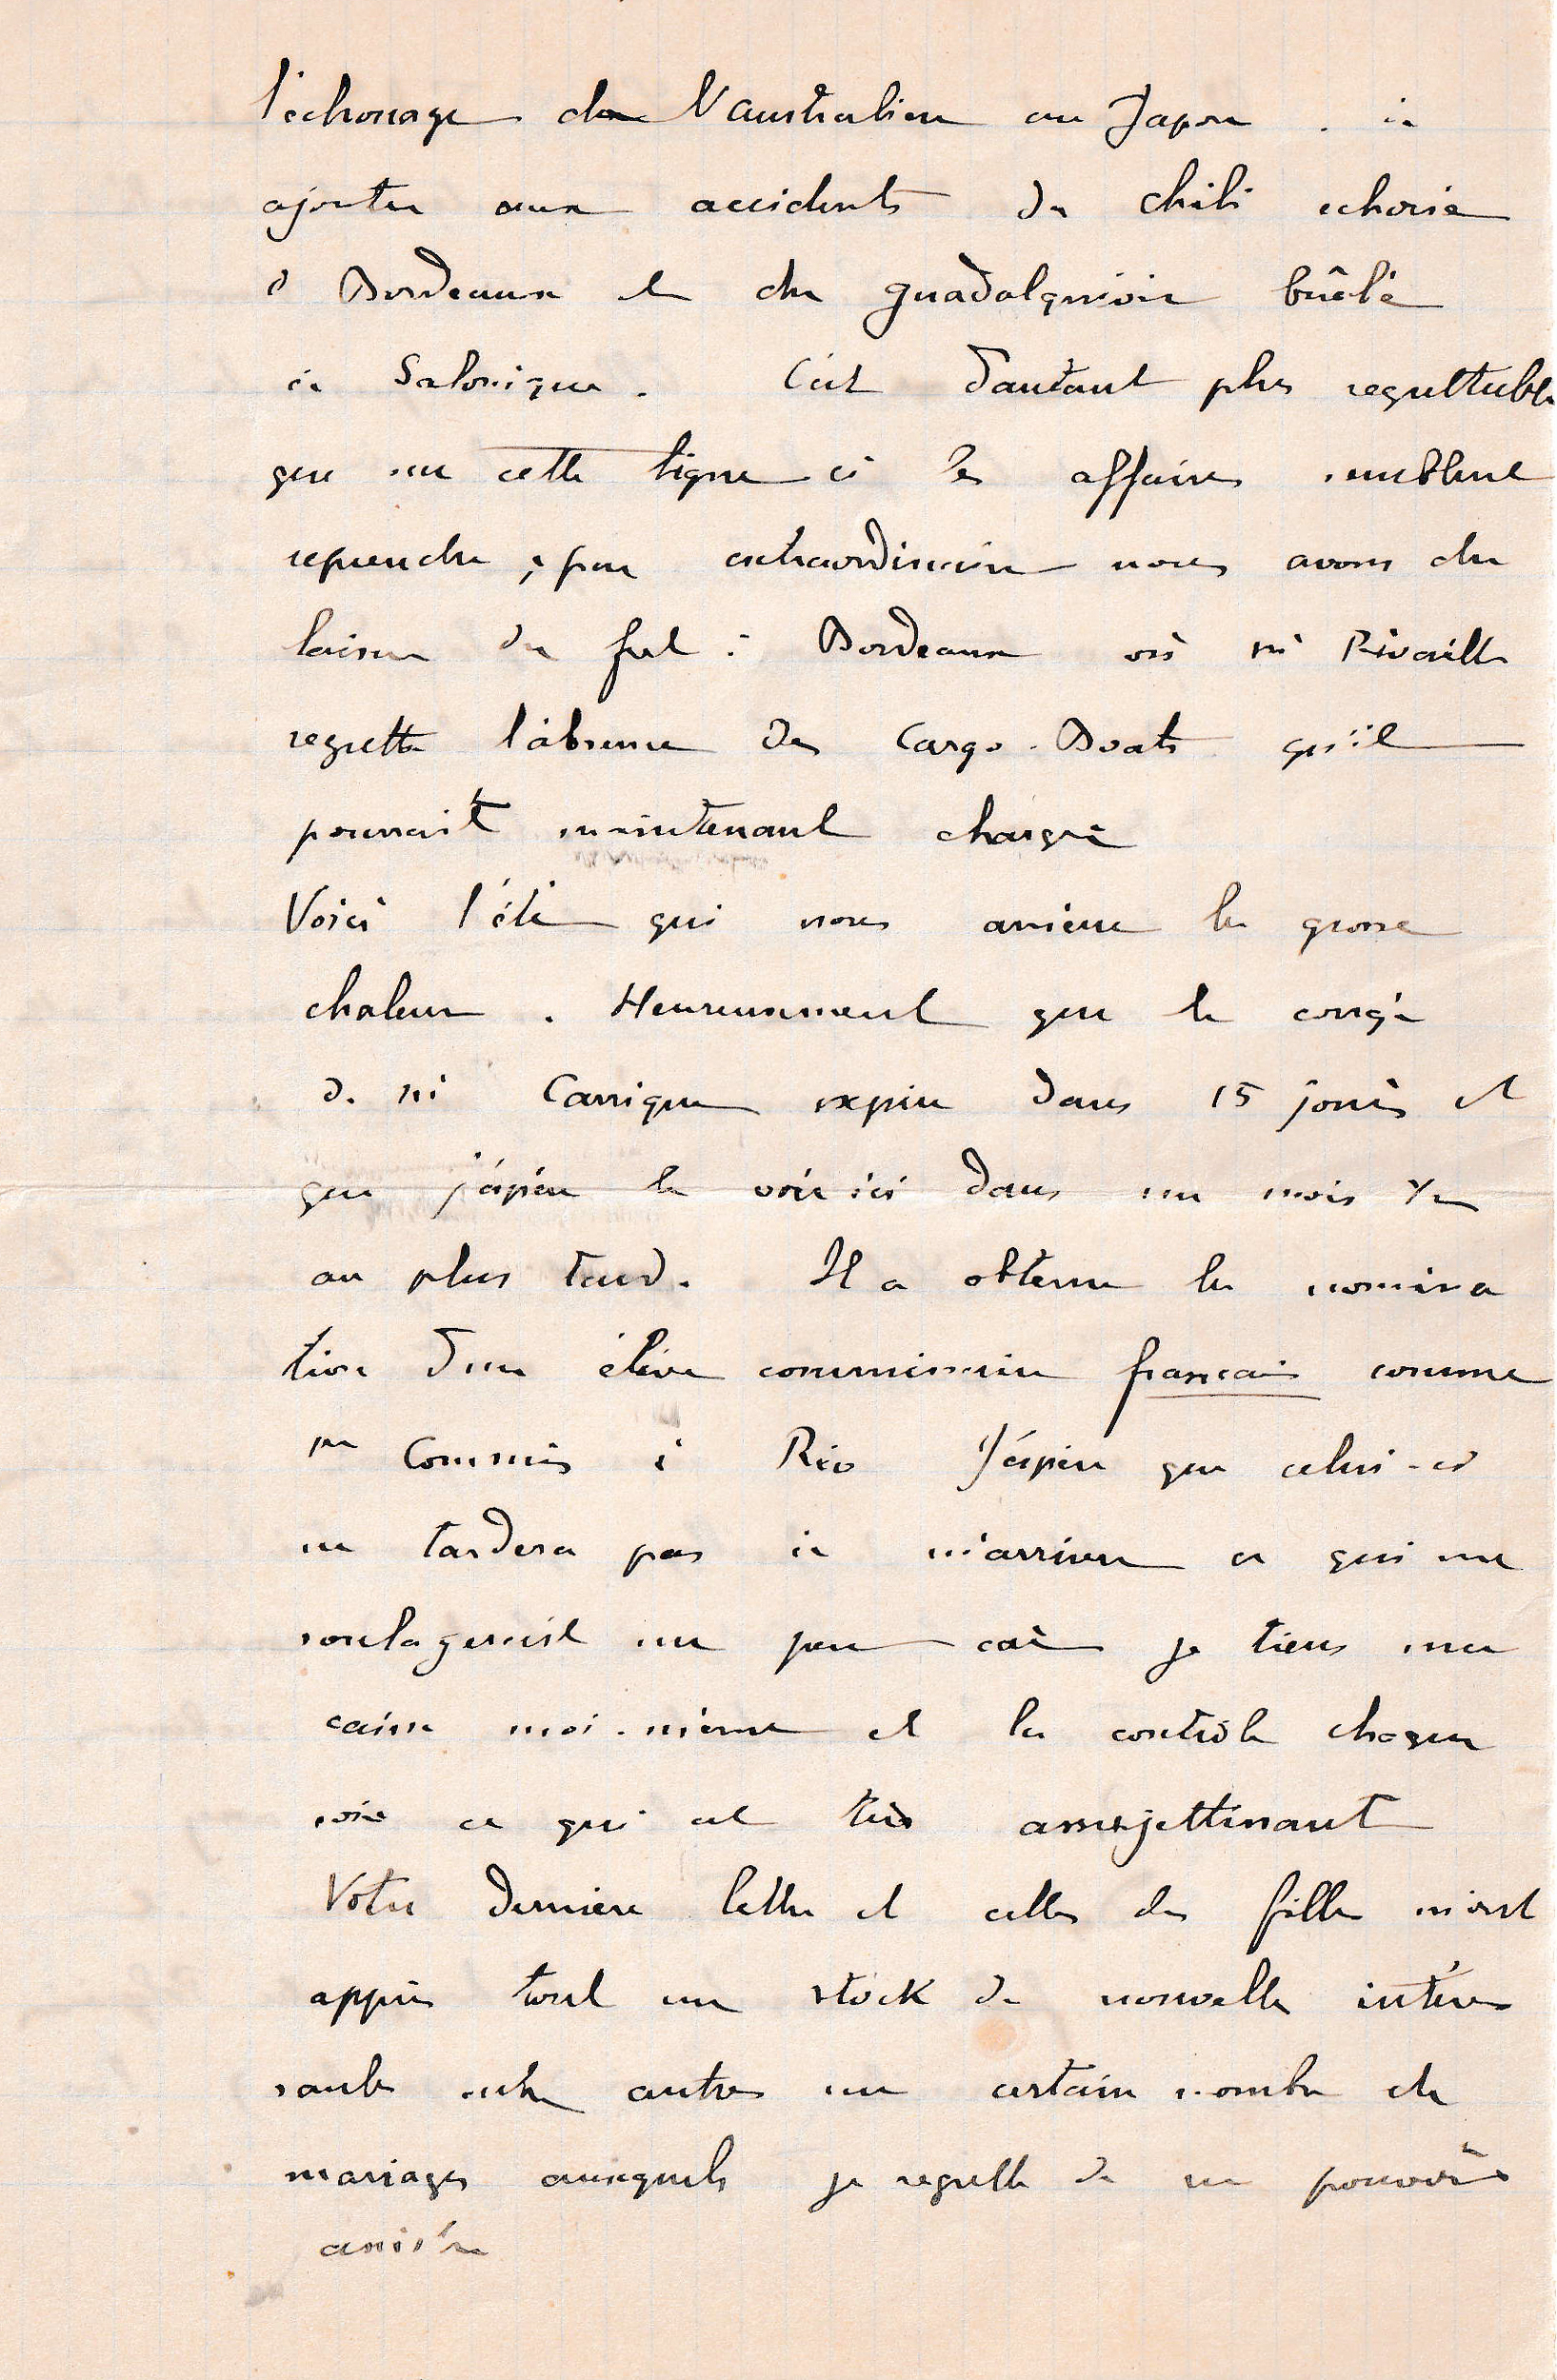 l'échouage de l'australien au Japon . à
ajouter aux accidents du chili echoué
à Bordeaux et du guadalquivir brûlé
à Salonique . C'est d'autant plus regrettable
que sur cette ligne ci les affaires semblent
reprendre ; par extraordinaire nous avons du
laisser du fret à Bordeaux où Mr Rivaille
regrette l'absence des Cargo-Boats qu'il
pourrait maintenant charger
Voici l'été qui nous amène la grosse
chaleur . Heureusement que le congé
de Mr Carrique expire dans 15 jours et
que j'espère le voir ici dans un mois ½
au plus tard . Il a obtenu la nomina
tion d'un élève commissaire francais comme
1er Commis à Rio J'espère que celui-ci
ne tardera pas à m'arriver ce qui me
soulagerait un peu car je tiens ma
caisse moi-même et la contrôle chaque
soir ce qui est très assujettissant
Votre dernière lettre et celles des filles m'ont
appris tout un stock de nouvelles intéres
santes entre autres un certain nombre de
mariages auxquels je regrette de ne pouvoir
assister